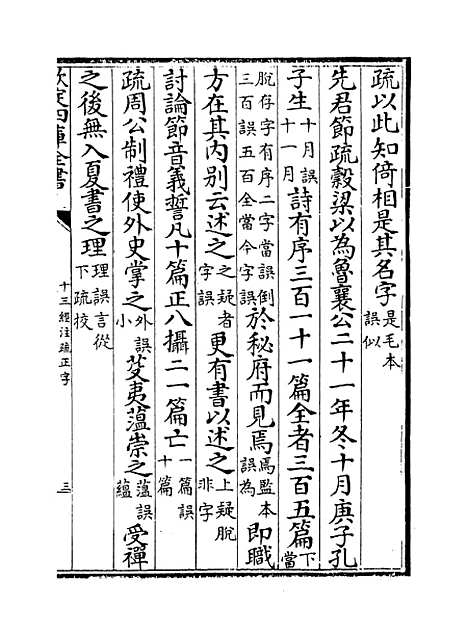 疏以此知倚相是其名字是毛本誤似
先君節疏穀梁以為魯襄公二十一年冬十月庚子孔
子生十月誤十一月詩有序三百一十一篇全者三百五篇下當
脫存字有序二字當誤倒三百誤五百全當今字誤於秘府而見焉焉監本誤為即職
方在其内別云述之之疑者字誤更有書以述之上疑脫非字
討論節音義誓凡十篇正八攝二一篇亡一篇誤十篇
疏周公制禮使外史掌之外誤小芟夷薀崇之薀誤蘊受禪
之後無入夏書之理理誤言從下疏校
欽定四庫全書
十三經注疏正字
三